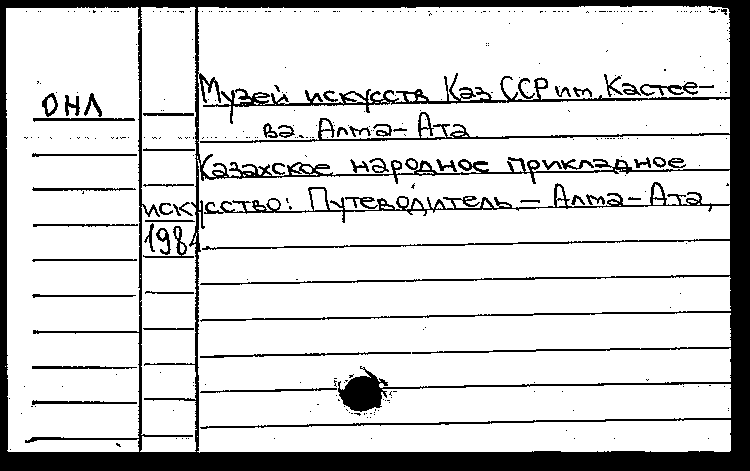 ОНЛ
Музей искусств Каз ССР им. Кастее-
ва. Алма-Ата
Казахское народное прикладное
искусство: Путеводитель. – Алма-Ата,
1981.